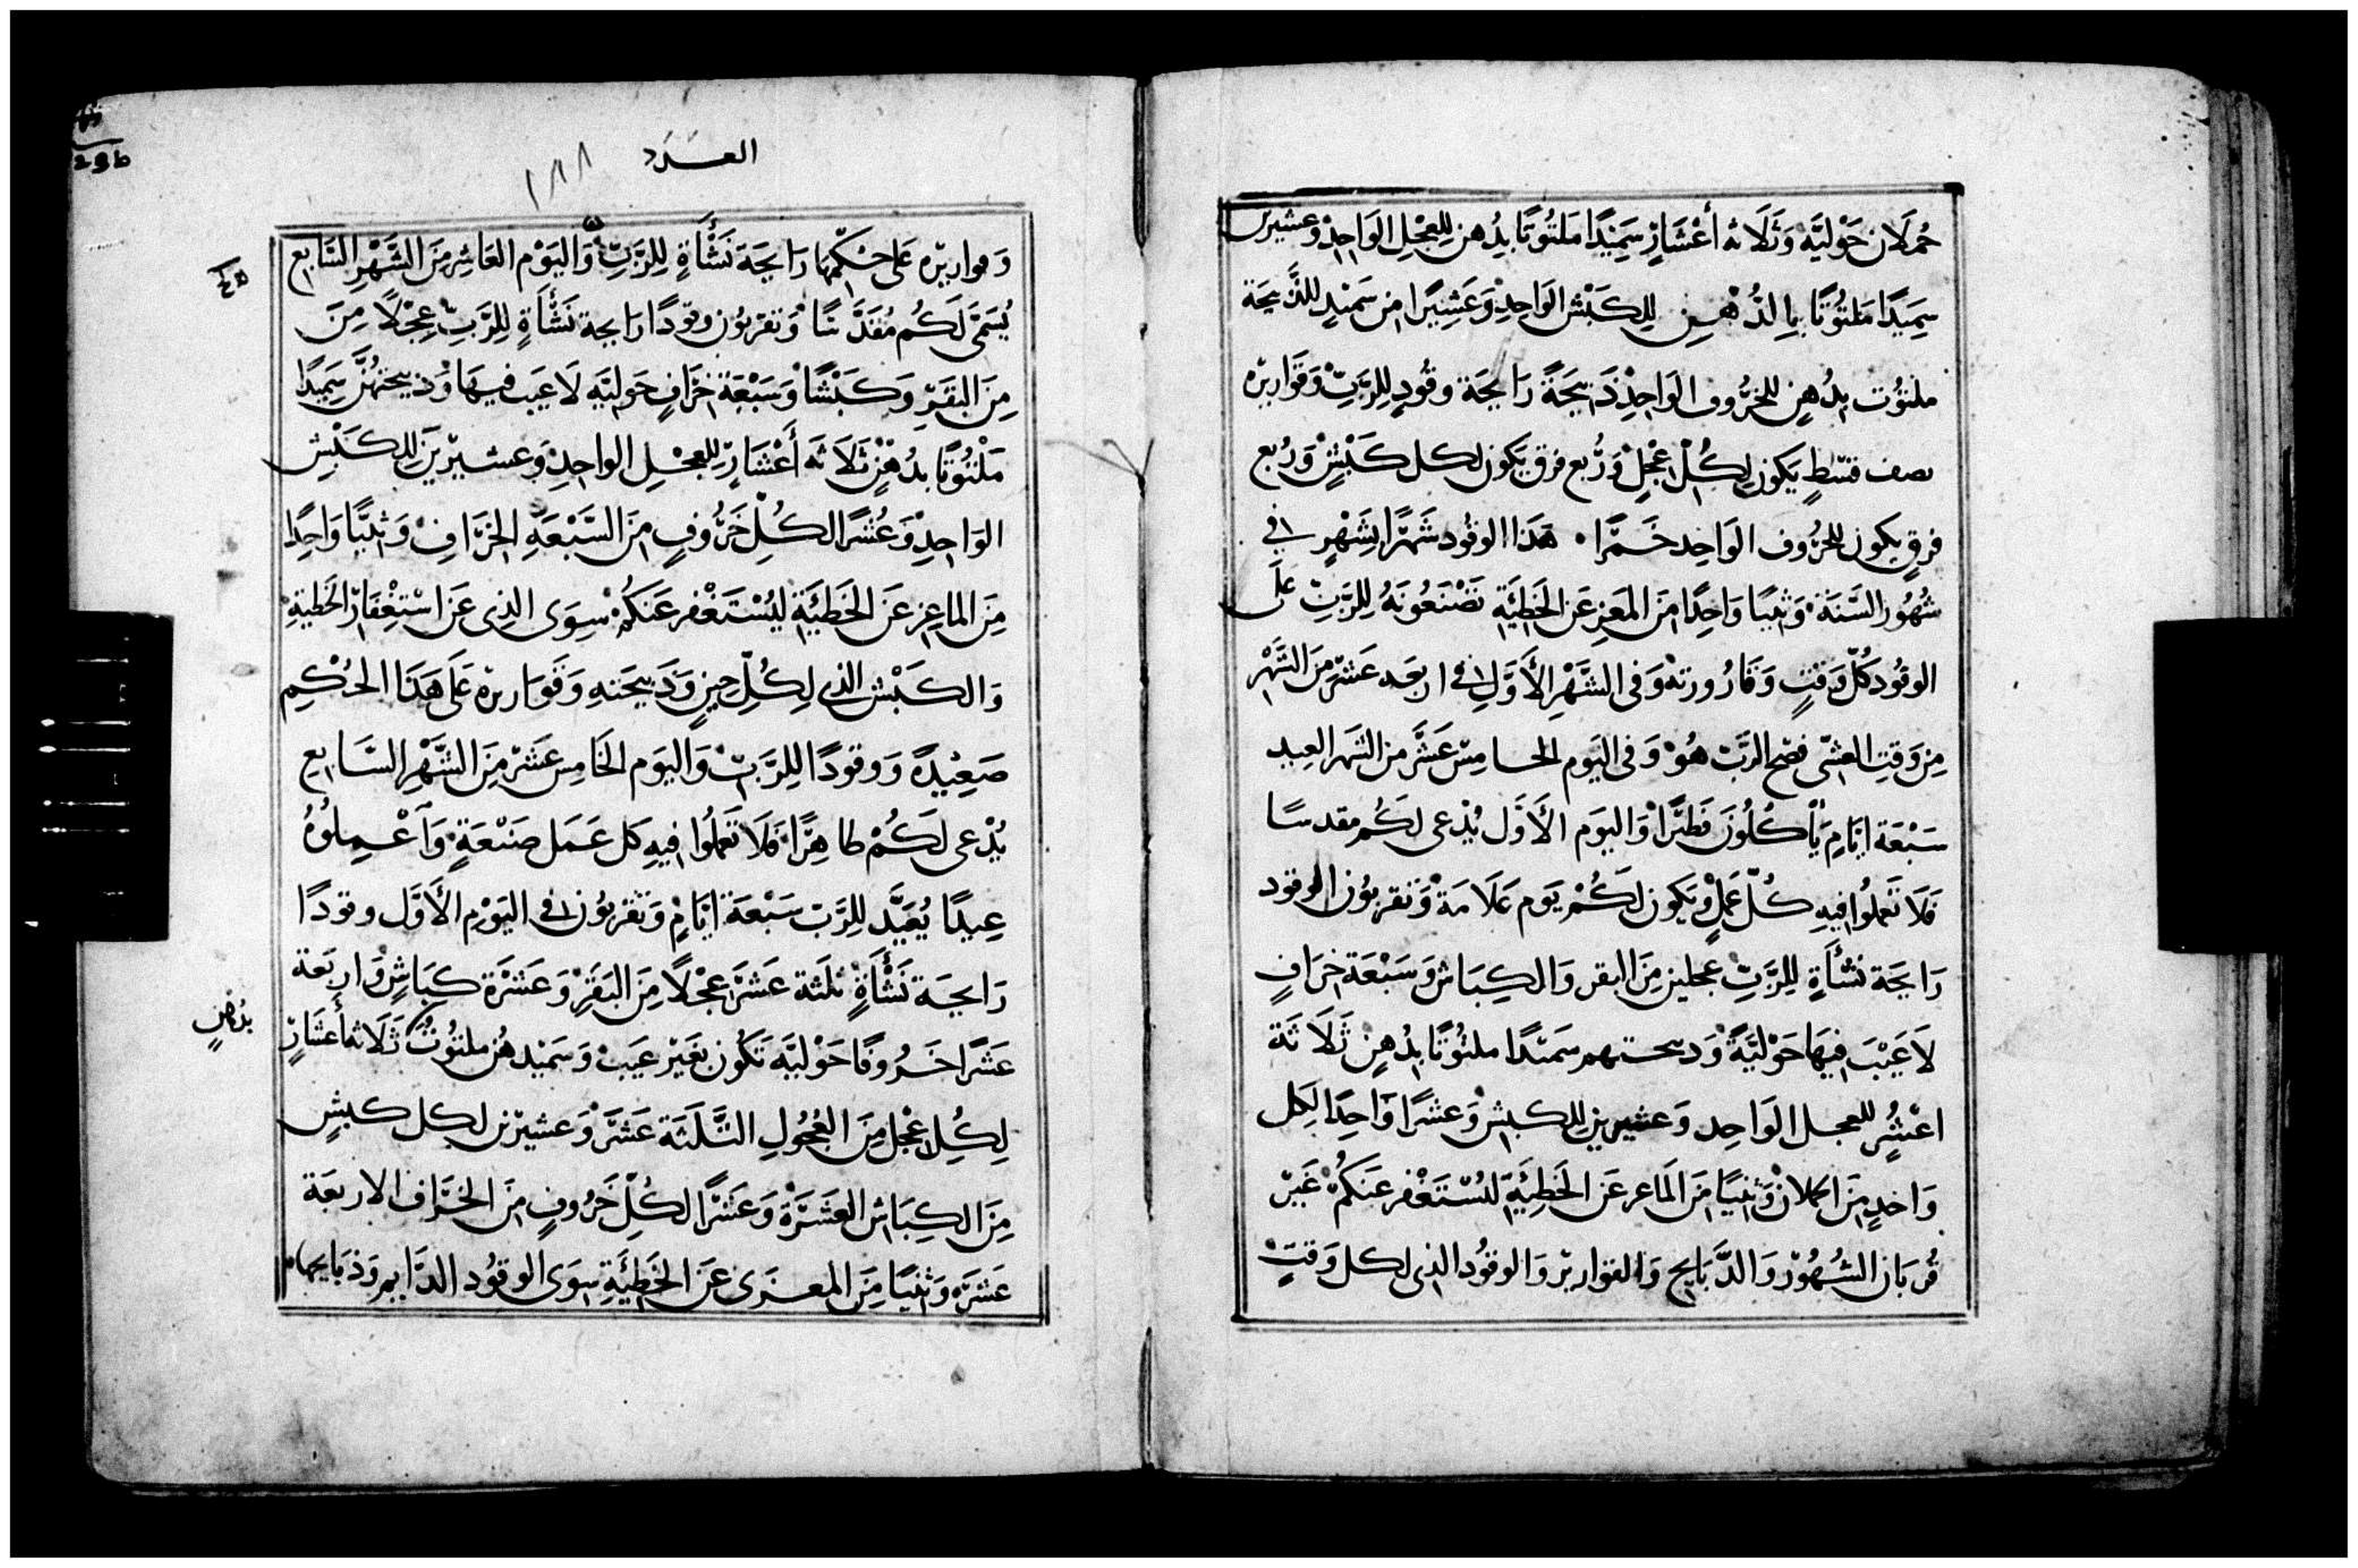 حُملَان حَوْليَّه وَثَلَاثه أَعْشَارٍ سَمِيْدًا مَلتُوتًا بِدُهن لِلعِجْلِ الوَاحِدِ وَعشيرين
سَمِيَدًا مَلتُوتًا بِالدُهْنِ لِلكَبْش الوَاحِدِ وَعَشِيْرًا مِن سَمِيْدٍ للذَّبِيحَة
ملتوُت بِدُهنٍ للخرُّوف الوَاحِدِ ذَبيحَةً رَايحَة وقُودٍ للِرَبِّ وَقَواريره
نصف قسْطٍ يَكون لِكُلّ عِجْلٍ وَرُبع فرق يكون لكل كَبْشٍ وَرُبع
فرقٍ يكون للخرُوف الوَاحِد خَمرًا ۰ هَذا الوقُود شَهرًا بِشَهْرٍ في
شهُور السَّنَة وَثنيًا وَاحِدًا مِنَ المَعِز عَن الخَطِيَّةِ تصْنَعُونهُ لِلرَبّ عَلَى
الوقُود كُلّ وَقتٍ وَقَارُورَته وَفى الشَهْرِ الأَوَّلِ فى اربَعَه عَشَر مِنَ الشَهْر
مِن وَقتِ العَشى فصْح الرَبّ هُوَ وَفى اليَوم الخامِس عَشَر مِن الشَهر العِيد
سَبْعَة ايَّامٍ يَأكُلُونَ فَطيرًا وَاليَوم الأَوَّل يُدعى لَكُم مقدسًا
فَلَا تَعملُوا فيهِ كُلّ عَمَلٍ وَيَكون لَكُمْ يَوم عَلَامَةٍ وَتقربُون الوقود
رَايحَة نَشْأَةٍ للِرَبِّ عجلين مِنَ البقر وَالكِبَاش وَسَبْعَة خرَافٍ
لَا عَيْبَ فيهَا حَوْليَّةً وَدبيحتهم سَميْدًا ملتُوتًا بِدُهنٍ ثَلَاثَة
اعْشُرٍ للعجل الوَاحِد وَعشيرين لِلكبشِ وَعشرًا وَاحِدًا لكِل
وَاحدٍ مِنَ الحملان وَثنيًا مِنَ المَاعِز عَن الخَطِيَّةِ ليُسْتَغْفر عَنكُمْ غَيْر
قُربَان الشهُوْر وَالدَّبَايح وَالقوارير وَالوقُود الذى لكل وَقتٍ
العَدَد ١٨٨
وَقواريره عَلى حكمهَا رَايحَة نَشْأَةٍ لِلرَبِّ وَاليَوْم العَاشِر مِنَ الشَهْرِ السَّابع
يُسَمَّى لَكُم مُقَدَّسًا وَتقربُون وقودًا رَايحة نَشْأَةٍ للِرَّبِّ عِجْلًا مِنَ
مِنَ البَقَر وَكَبْشًا وَسَبْعَة خرَافٍ حَوليَّه لَا عَيب فيهَا وَذبيحتهُنَّ سَمِيدًا
مَلْتُوتًا بدُهنٍ ثَلَاثَه أَعْشَارٍ للِعِجْلِ الواحِدِ وَعشيرين للِكَبْش
الوَاحِدِ وَعُشرًا لكُلّ خرُّوفٍ مِنَ السَّبْعَةِ الخرَافِ وَثنيًّا وَاحِدًا
مِنَ الماعِز عَن الخَطيَّةِ ليُسْتَغْفر عَنكُمْ سِوَى الذى عَن اسْتغِفَار الخَطيَّةِ
وَالكَبْش الذى لِكُلّ حِينٍ وَدَبيحَتهِ وَقَواريره عَلَى هَذا الحُكْمِ
صَعِيْدةً وَوقودًا للِرَّبّ وَاليَوم الخَامِس عَشَر مِنَ الشَهْر السَّابع
يُدْعى لَكُمْ طاهِرًا فَلَا تَعملُوا فيهِ كل عَمَل صَنْعَةٍ وَاعْمِلوُهُ
عِيدًا يُعَيَّد للِرَّب سَبْعَة ايَّامٍ وَتقربُون فى اليَوْم الأَوَّل وقودًا
رَايحَة نَشْأَةٍ ثلثة عَشَر عِجْلًا مِنَ البَقَر وَعَشْرَة كِبَاشٍ وَاربَعة
عَشَرَ خَرُوفًا حَوْليَّه تَكُون بغَيْر عَيب وَسَمِيْدهُن ملتوُت ثَلَاثه أَعشَارٍ
بدُهنٍ
لِكُلّ عِجْل مِنَ العُجُولِ الثَّلثَة عَشَر وَعشيرَين لكل كبشٍ
مِنَ الكِبَاش العَشَرَة وَعَشرًا لكُلّ خَرُوفٍ مِنَ الخرَاف الاربعَة
عَشَرَة وَثنيًا مِنَ المعزى عَنَ الخَطِيَّةِ سِوَى الوقُود الدَّايم وَذبَايحهَا
29b